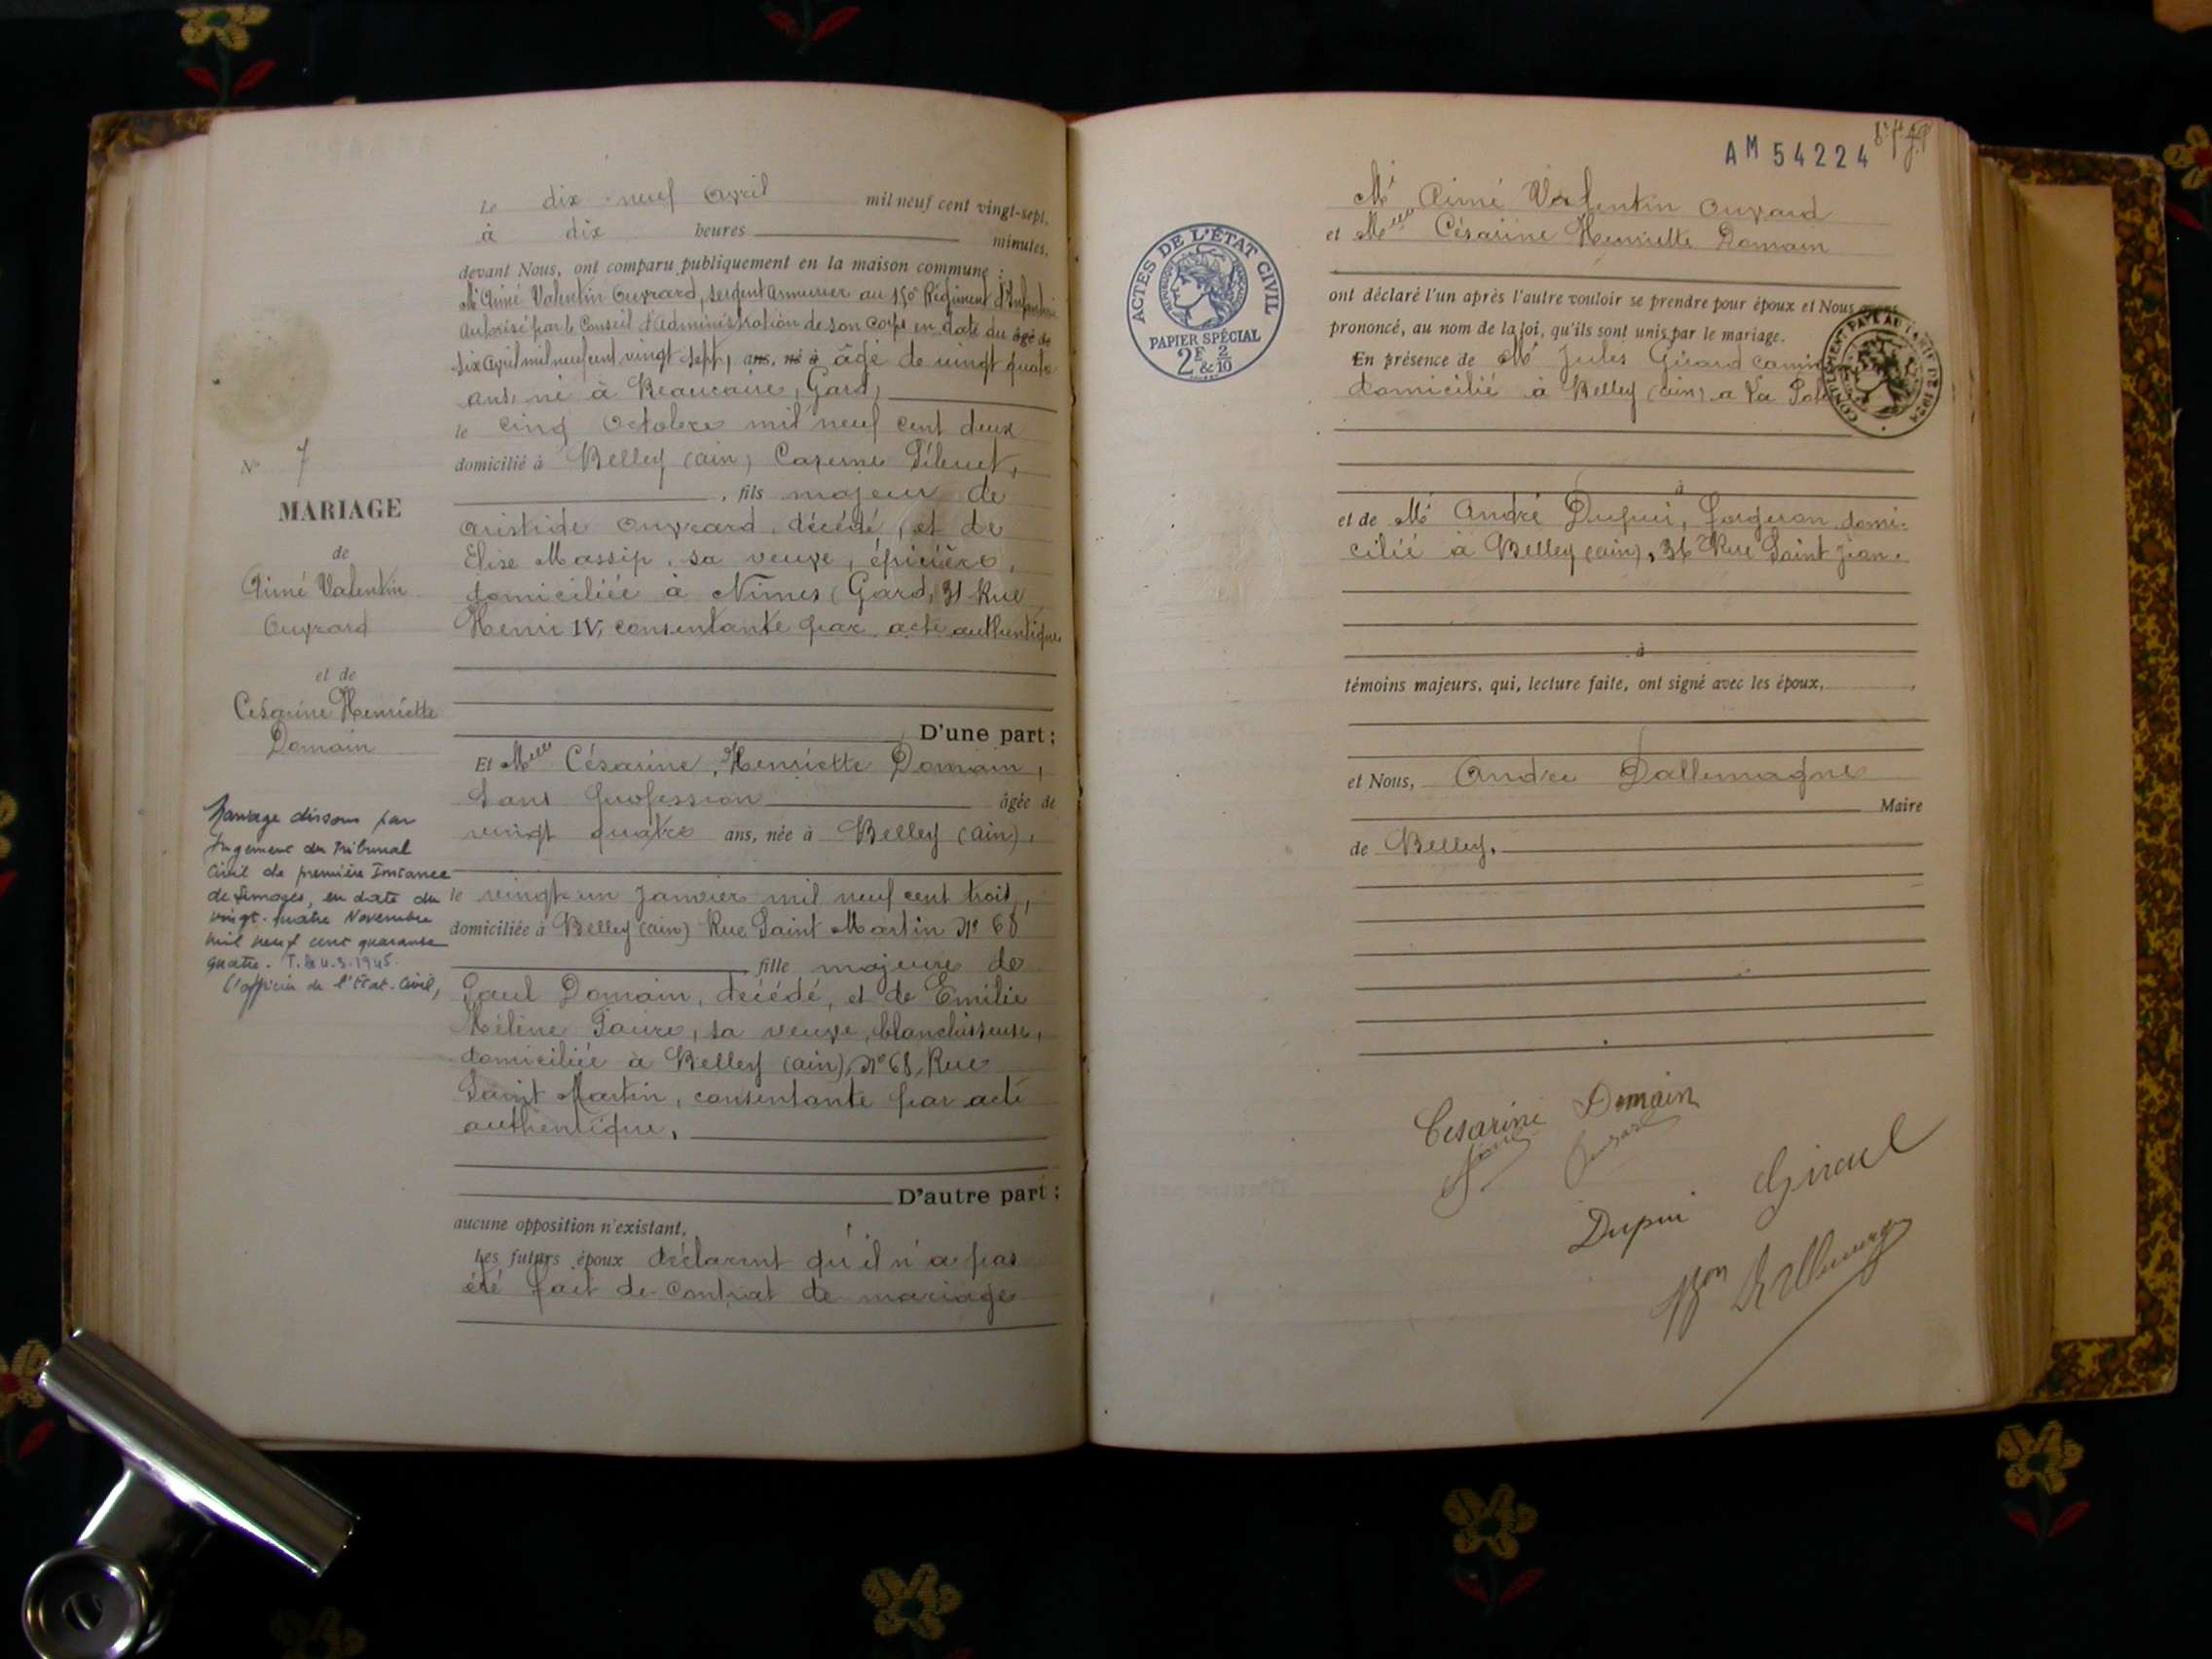 Le dix-neuf avril mil neuf cent vingt-sept,
à dix heures minutes,
devant Nous, ont comparu publiquement en la maison commune :
Mr Aimé Valentin Ouvrard, sergent armurier au 150e Régiment d'Infanterie
Autorisé par le Conseil d'Administration de son Corps en date du âgé de
six avril mil neuf cent vingt sept, ans, né à âgé de vingt quatre
ans, né à Beaucaire, Gard,
le cinq Octobre mil neuf cent deux
domicilié à Belley (ain) Caserne Sibuet,
, fils majeur de
Aristide Ouvrard, décédé, et de
Elise Massip, sa veuve, épicière,
domiciliée à Nimes (Gard, 31 Rue
Henri IV, consentante par acte authentique
D'une part ;
Et Melle Césarine, Henriette Domain,
Sans profession âgée de
vingt quatre ans, née à Belley (ain),
le vingt-un Janvier mil neuf cent trois,
domiciliée à Belley (ain) Rue Saint Martin No 68
fille majeure de
Paul Domain, décédé, et de Emilie
Méline Faure, sa veuve, blanchisseuse,
domiciliée à Belley (ain), No 68, Rue
Saint Martin, consentante par acte
authentique.
D'autre part ;
aucune opposition n'existant.
Les futurs époux déclarent qu'il n'a pas
été fait de Contrat de mariage
No 7
MARIAGE
de
Aimé Valentin
Ouvrard
et de
Césarine Henriette
Domain
Mariage dissous par
Jugement du Tribunal
Civil de première Instance
de Limoges, en date du
vingt-quatre Novembre
mil neuf cent quarante
quatre. T. le 4.3.1945.
l'officier de l'Etat-Civil,
AM 54224
Mr Aimé Valentin Ouvrard
et Melle Césarine Henriette Domain
ont déclaré l'un après l'autre vouloir se prendre pour époux et Nous avons
prononcé, au nom de la loi, qu'ils sont unis par le mariage.
En présence de Mr Jules
domicilié à Belley (ain) a La
à
et de Mr André Dupui, forgeron domi-
cilié à Belley (ain), 36 Rue Saint Jean.
à
témoins majeurs, qui, lecture faite, ont signé avec les époux,
et Nous, André Dallemagne
Maire
de Belley.
Cesarine Domain
Aimé Ouvrard
Dupui
Bon Dallemagne
ACTES DE L'ÉTAT CIVIL
PAPIER SPÉCIAL
2F & 2/10
COMPLÉMENT PAYÉ AU TARIF DE 1924